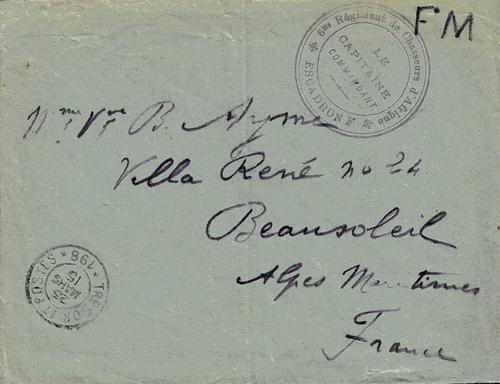 FM
* 6me Régiment de Chasseurs d'Afrique *
ESCADRON F
LE
CAPITAINE
COMMANDANT
Mme Vve B. Ayme
Villa René no 24
Beausoleil
Alpes Maritimes
France
* TRESOR ET POSTES * 198
25
MARS
15